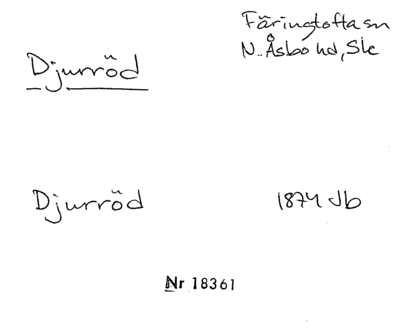 Färingtofta sn
N. Åsbo hd, Sk
Djurröd
Djurröd 1874 Jb
Nr 18361